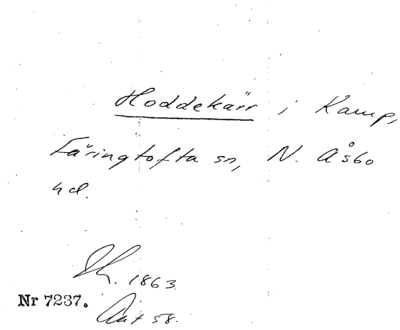 Hoddekärr i Kamp,
Färingtofta sn, N. Åsbo
hd.
Sk. 1863.
Nr 7237.
Akt 58.